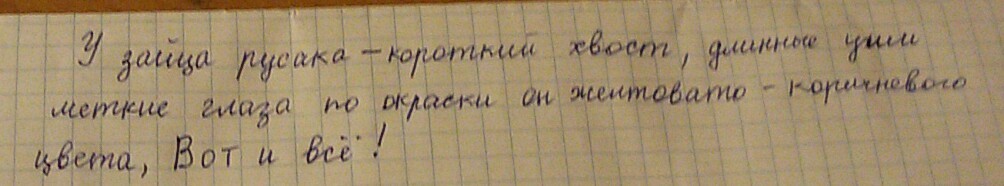 У зайца русака – короткий хвост, длинные уши
меткие глаза по окраски он желтовато – коричневого
цвета, Вот и всё!